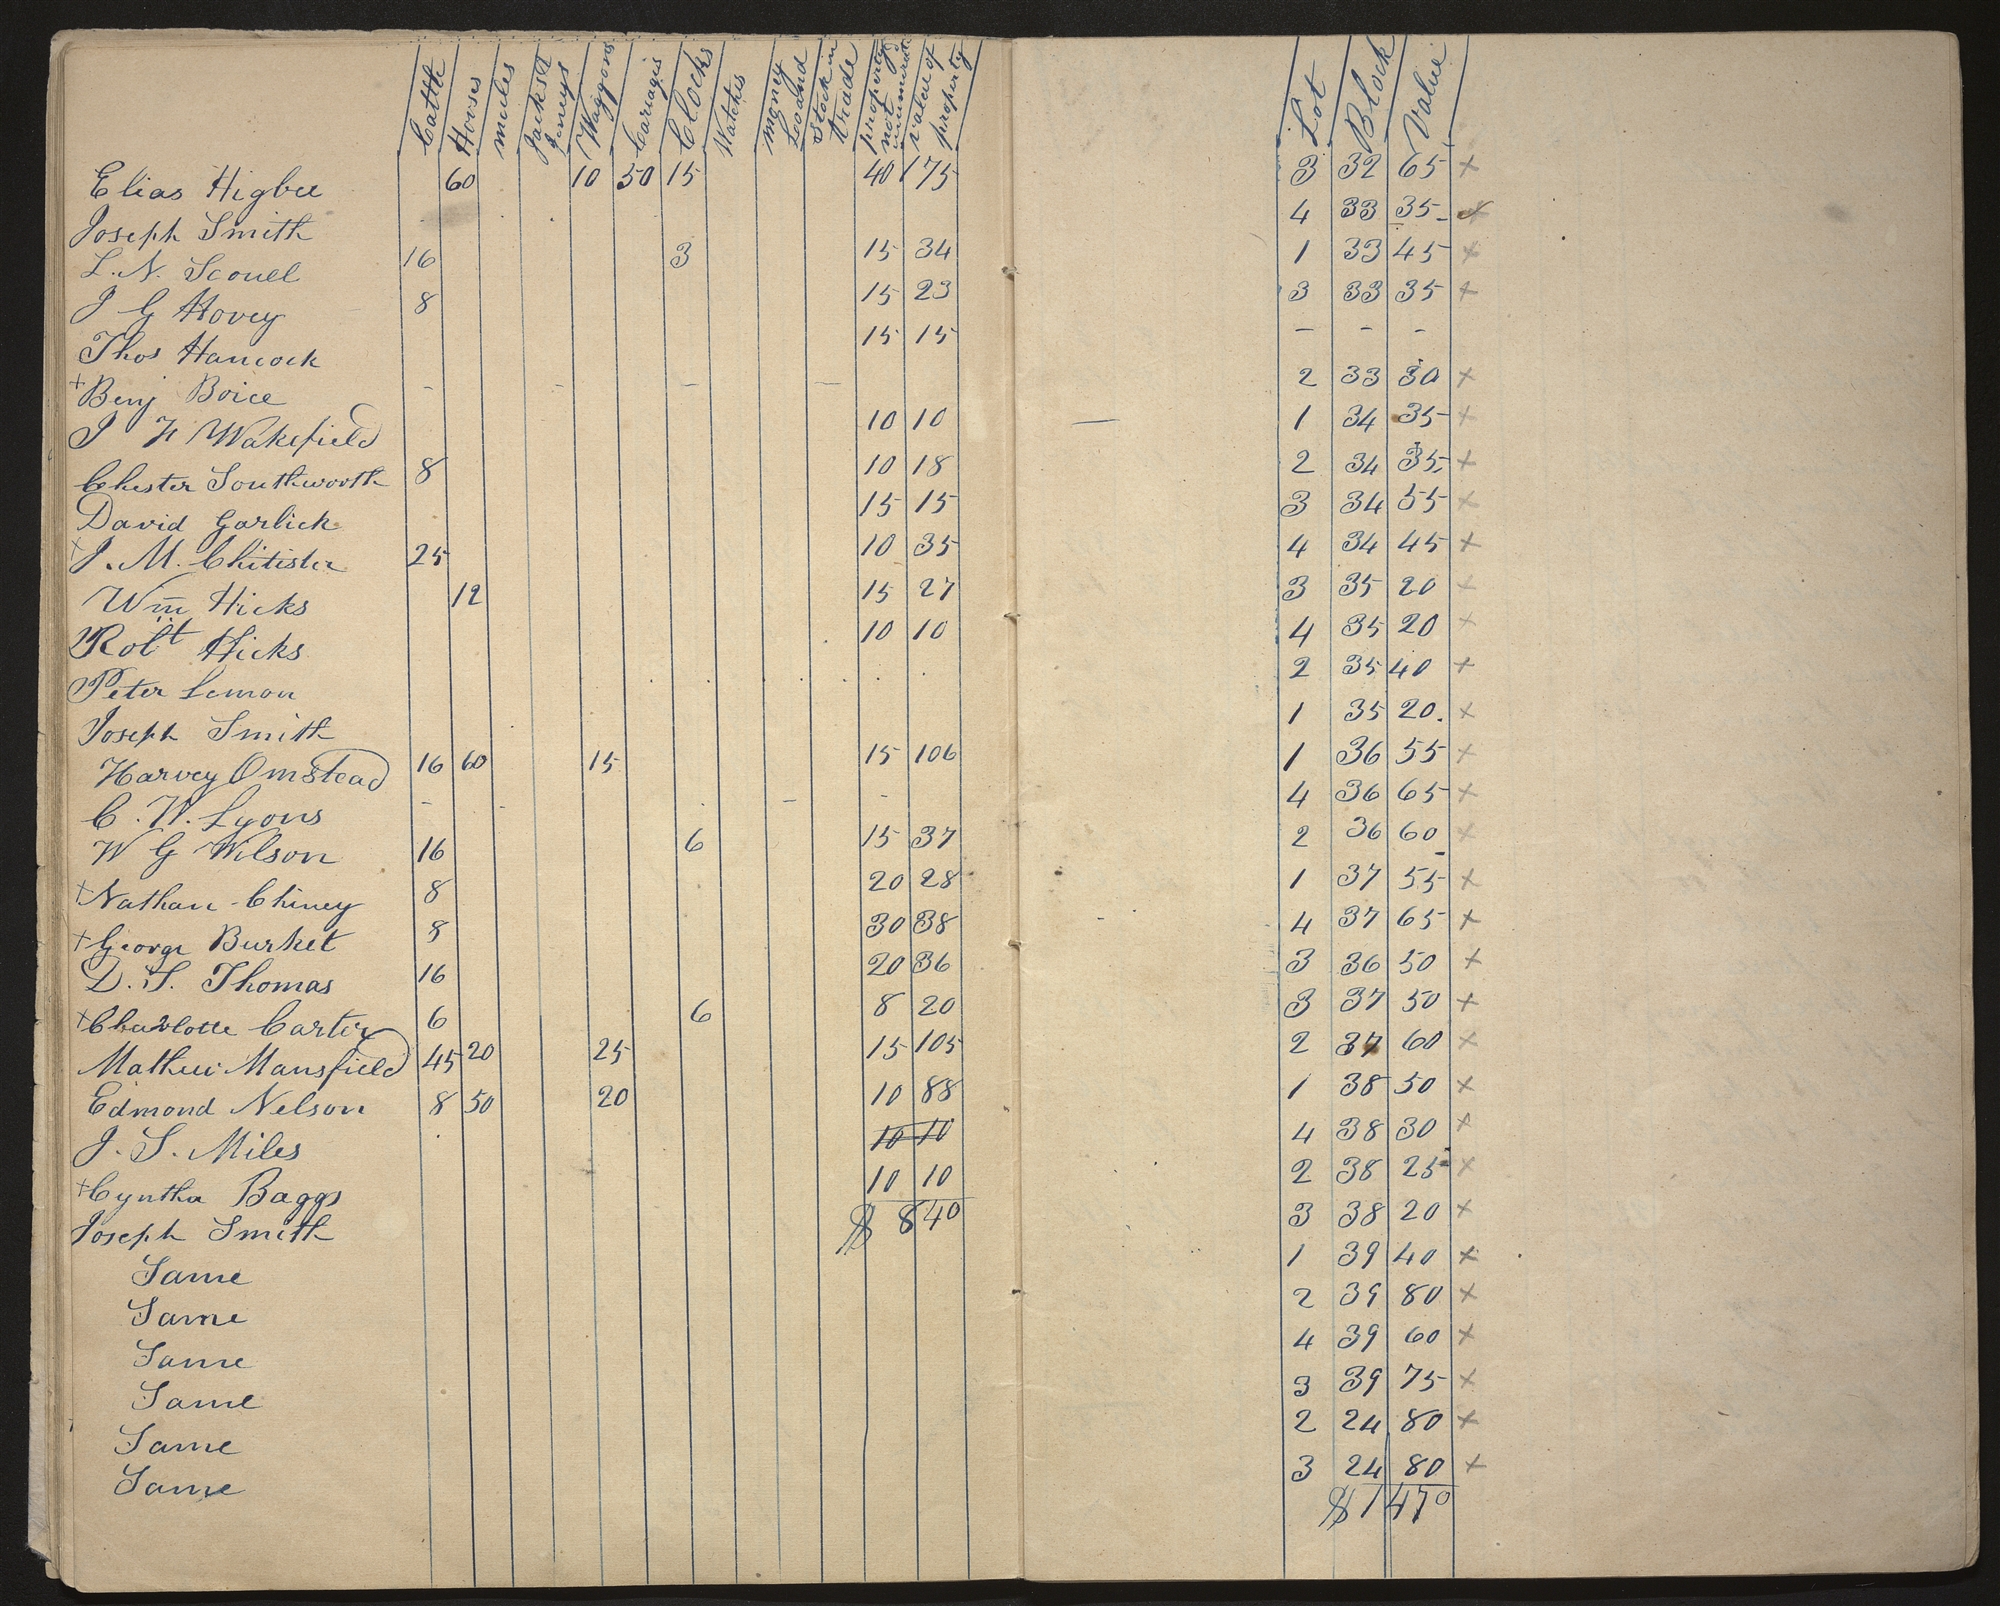 Cattle Horses mules Jacks & Jineys Waggons Cariages Clocks Watches money Loand stock in trade property not inumirated value of property Lot Block Value
Elias Higbee 60 10 50 15 40 175 3 32 65 x
Joseph Smith 4 33 35 x
L. N. Scovel 16 3 15 34 1 33 45 x
J G Hovey 8 15 23 3 33 35 x
Thos Hancock 15 15 – – –
+ Benj Boice – – – – 2 33 30 x
J F Wakefield 10 10 1 34 35 x
Chester Southworth 8 10 18 2 34 35 x
David Garlick 15 15 3 34 55 x
+ J. M. Chitister 25 10 35 4 34 45 x
Wm Hicks 12 15 27 3 35 20 x
Robt Hicks 10 10 4 35 20 x
Peter Lemon 2 35 40 x
Joseph Smith 1 35 20. x
Harvey Omstead 16 60 15 15 106 1 36 55 x
C. W. Lyons – – – – 4 36 65 x
W G Wilson 16 6 15 37 2 36 60 x
+ Nathan Chiney 8 20 28 1 37 55 x
+ George Burket 8 30 38 4 37 65 x
D. S. Thomas 16 20 36 3 36 50 x
+ Charlotte Carter 6 6 8 20 3 37 50 x
Mathew Mansfield 45 20 25 15 105 2 37 60 x
Edmond Nelson 8 50 20 10 88 1 38 50 x
J. S. Miles 10 10 4 38 30 x
+ Cyntha Baggs 10 10 2 38 25 x
Joseph Smith $ 840 3 38 20 x
Same 1 39 40 x
Same 2 39 80 x
Same 4 39 60 x
Same 3 39 75 x
Same 2 24 80 x
Same 3 24 80 x
$ 1470